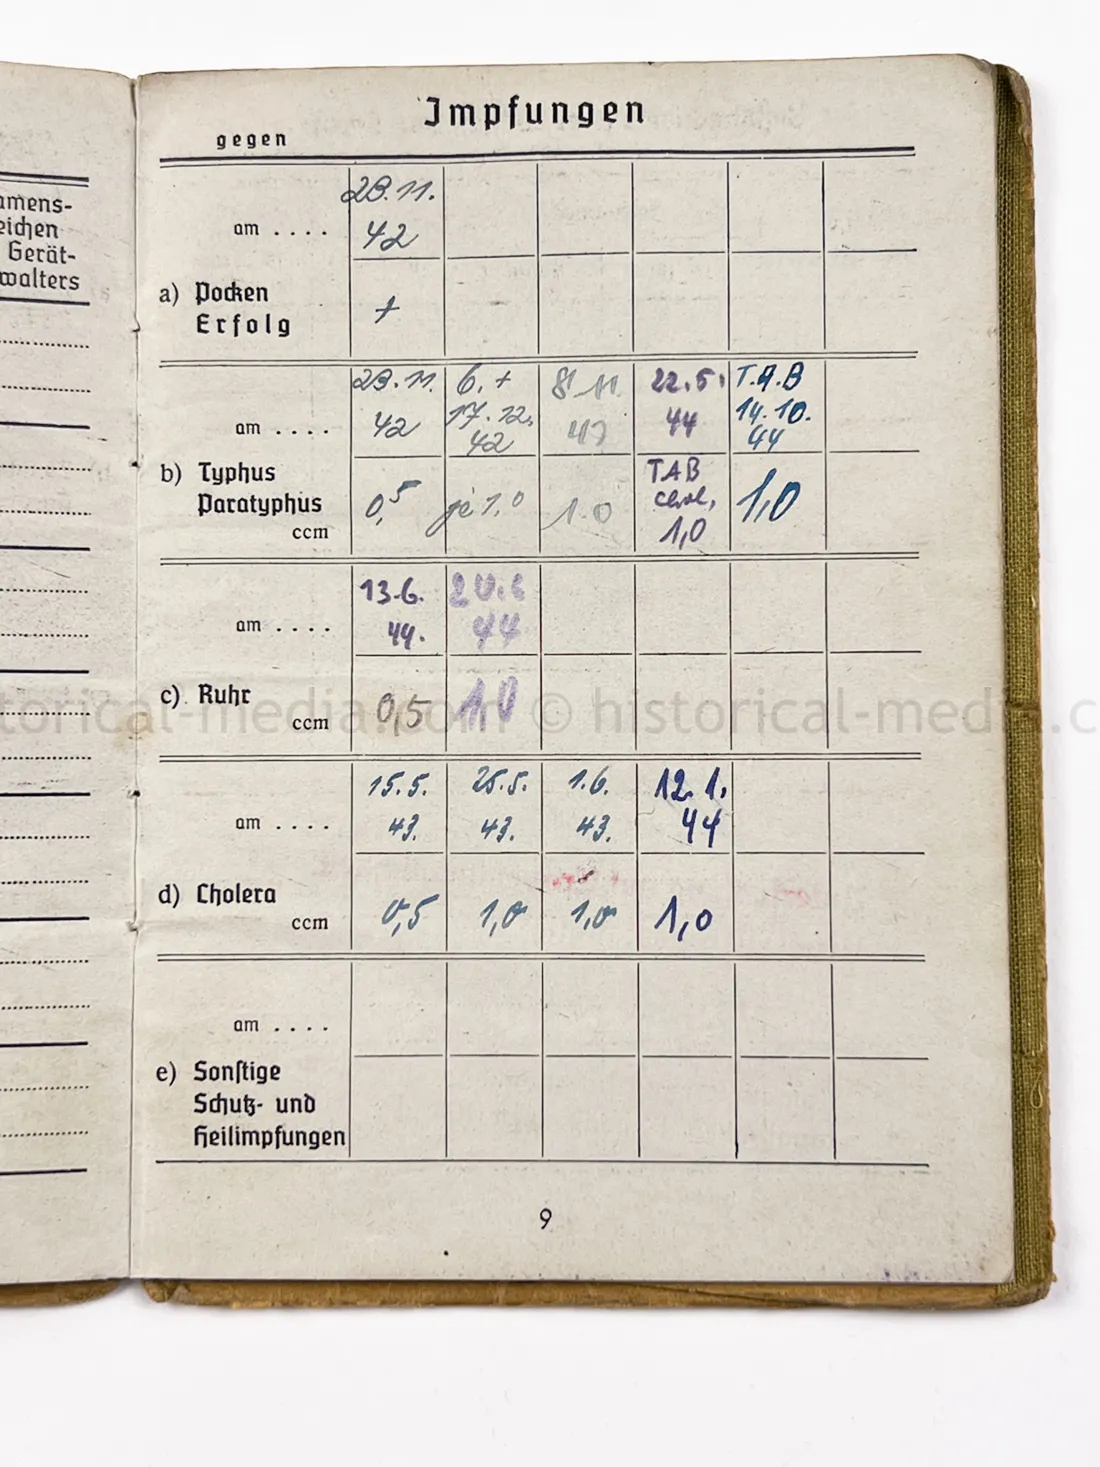 amens-
eichen
Gerät-
walters
Impfungen
gegen
am . . . .
28.11.
42
a) Pocken
Erfolg
+
am . . . .
28.11.
42
6. +
17.12.
42
8.11.
43
22.5.
44
T.A.B
14.10.
44
b) Typhus
Paratyphus
ccm
0,5
je 1,0
1.0
TAB
chol,
1,0
1,0
am . . . .
13.6.
44.
20.6
44
c) Ruhr
ccm
0,5
1,0
torical-media.com © historical-media.c
am . . . .
15.5.
43.
25.5.
43.
1.6.
43.
12.1.
44
d) Cholera
ccm
0,5
1,0
1,0
1,0
am . . . .
e) Sonstige
Schutz- und
Heilimpfungen
9